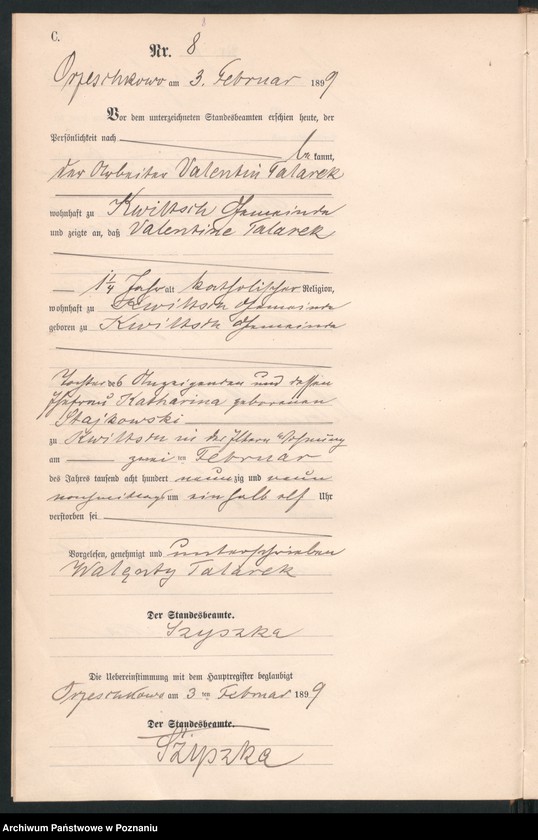 C.
Nr. 8
Orzeschkowo am 3. Februar 1899
Vor dem unterzeichneten Standesbeamten erschien heute, der
Persönlichkeit nach
be kannt,
der Arbeiter Valentin Talarek
wohnhaft zu Kwiltsch Gemeinde
und zeigte an, daß Valentine Talarek
1 1/4 Jahr alt katholischer Religion,
wohnhaft zu Kwiltsch Gemeinde
geboren zu Kwiltsch Gemeinde
Tochter des Anzeigenden und dessen
Ehefrau Katharina geborenen
Stajkowski
zu Kwiltsch in der Eltern Wohnung
am zwei ten Februar
des Jahres tausend acht hundert neunzig und neun
vormittags um ein halb elf Uhr
verstorben sei
Vorgelesen, genehmigt und unterschrieben
Walenty Talarek
Der Standesbeamte.
Szyszka
Die Uebereinstimmung mit dem Hauptregister beglaubigt
Orzeschkowo am 3 ten Februar 1899
Der Standesbeamte.
Szyszka
Archiwum Państwowe w Poznaniu